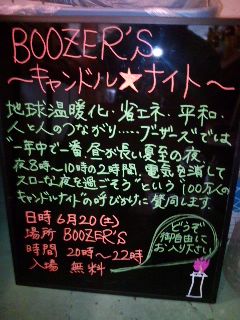 BOOZER'S
～キャンドル★ナイト～
地球温暖化・省エネ・平和・
人と人のつながり……ブザーズでは
"一年中で一番、昼が長い夏至の夜、
夜8時～10時の2時間、電気を消して
スローな夜を過ごそう"という100万人の
キャンドルナイトの呼びかけに賛同します。
日時 6月20(土)
場所 BOOZER'S
時間 20時～22時
入場 無料
どうぞ
御自由に
お入り下さい